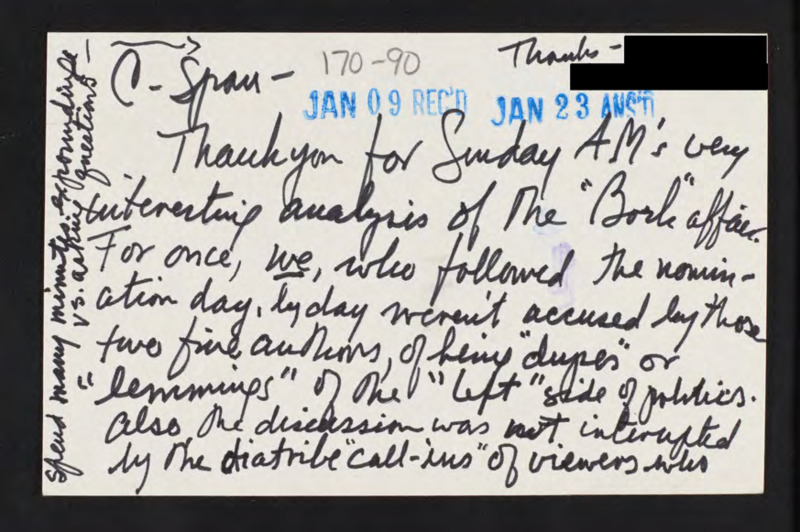 C-Span-
170-90
Thanks-
JAN 09 REC'D
JAN 23 ANS'D
Thankyou for Sunday AM's very
interesting analysis of the "Bork" affair.
For once, we, who followed the nomin-
ation day, by day weren't accused by those
two fine authors, of being "dupes" or
"lemmings" of the "left" side of politics.
Also the discussion was not interrupted
by the diatribe "call-ins" of viewers who
spend many minutes expounding
vs. asking questions-